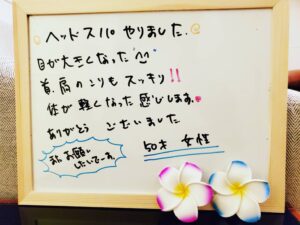 ヘッドスパ やりました.
目が大きくなった ^^
首、肩のこりも スッキリ!!
体が軽くなった感じします。
ありがとう ございました
また お願い
したいでーす。
50才 女性